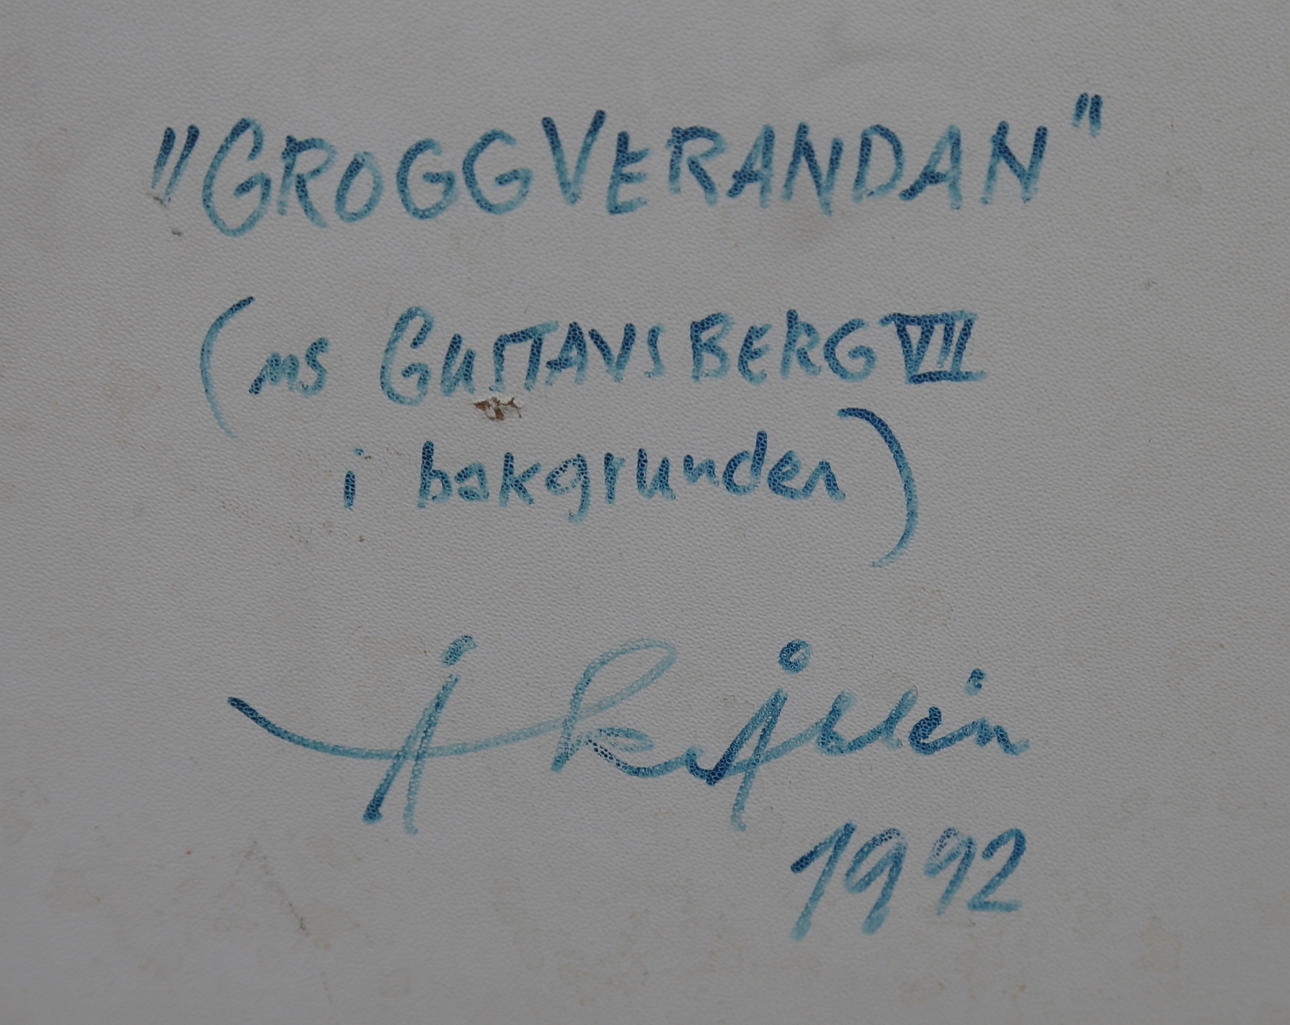 "GROGGVERANDAN"
(ms GUSTAVSBERG VII
i bakgrunden)
1992